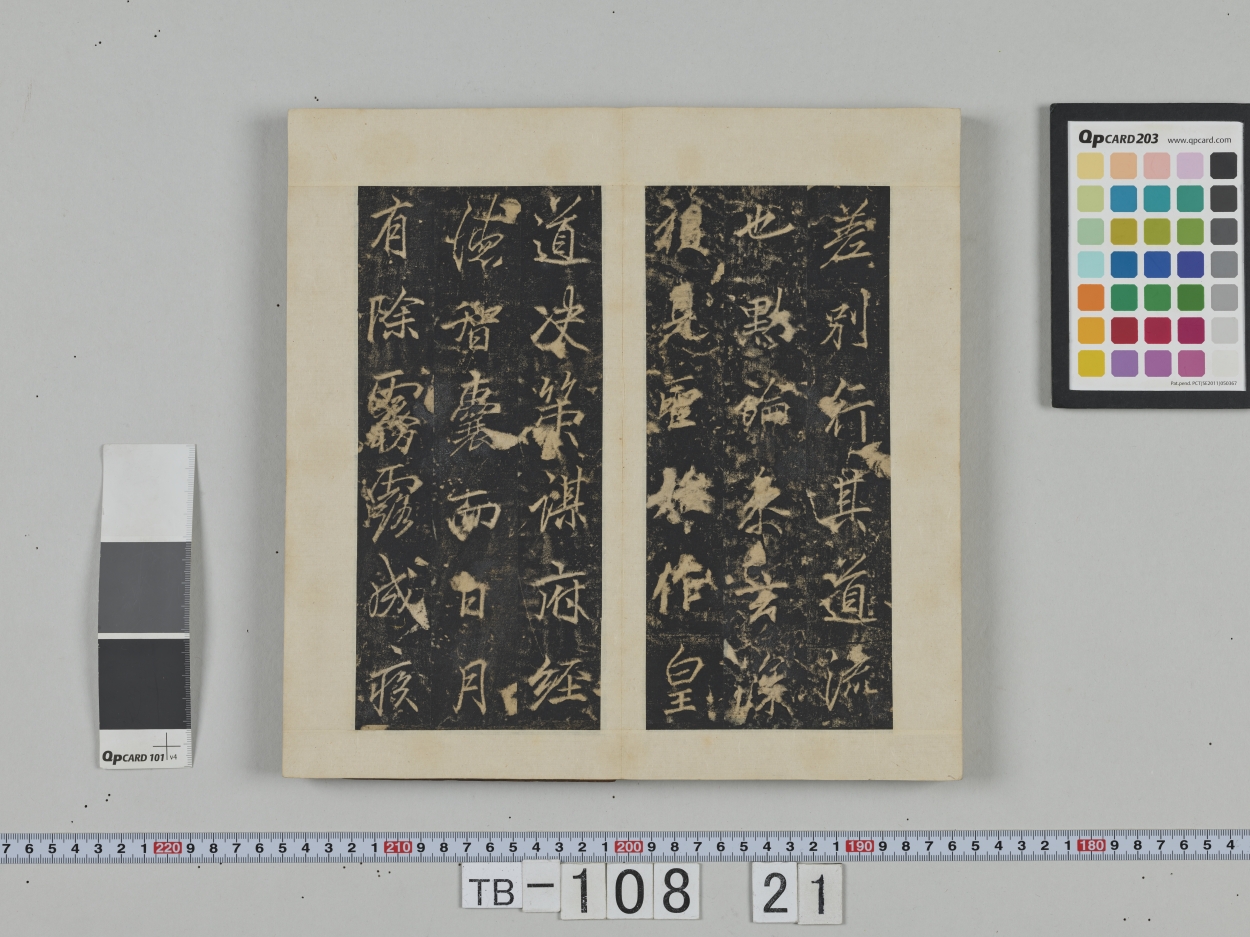 差別行其道流
也論深
見作皇
道決策謀府經
德智囊而日月
有除霧露
QpCARD 203 www.qpcard.com
QpCARD 101 v4
7 6 5 4 3 2 1 220 9 8 7 6 5 4 3 2 1 210 9 8 7 6 5 4 3 2 1 200 9 8 7 6 5 4 3 2 1 190 9 8 7 6 5 4 3 2 1 180 9 8 7 6 5 4
TB-108 21